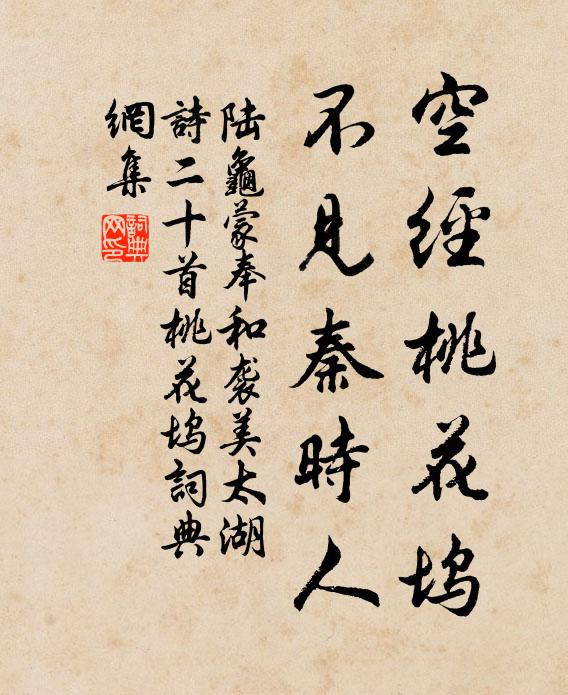 空經桃花塢
不見秦時人
陸龜蒙奉和袭美太湖
詩二十首桃花塢詞典
網集
詞典网印